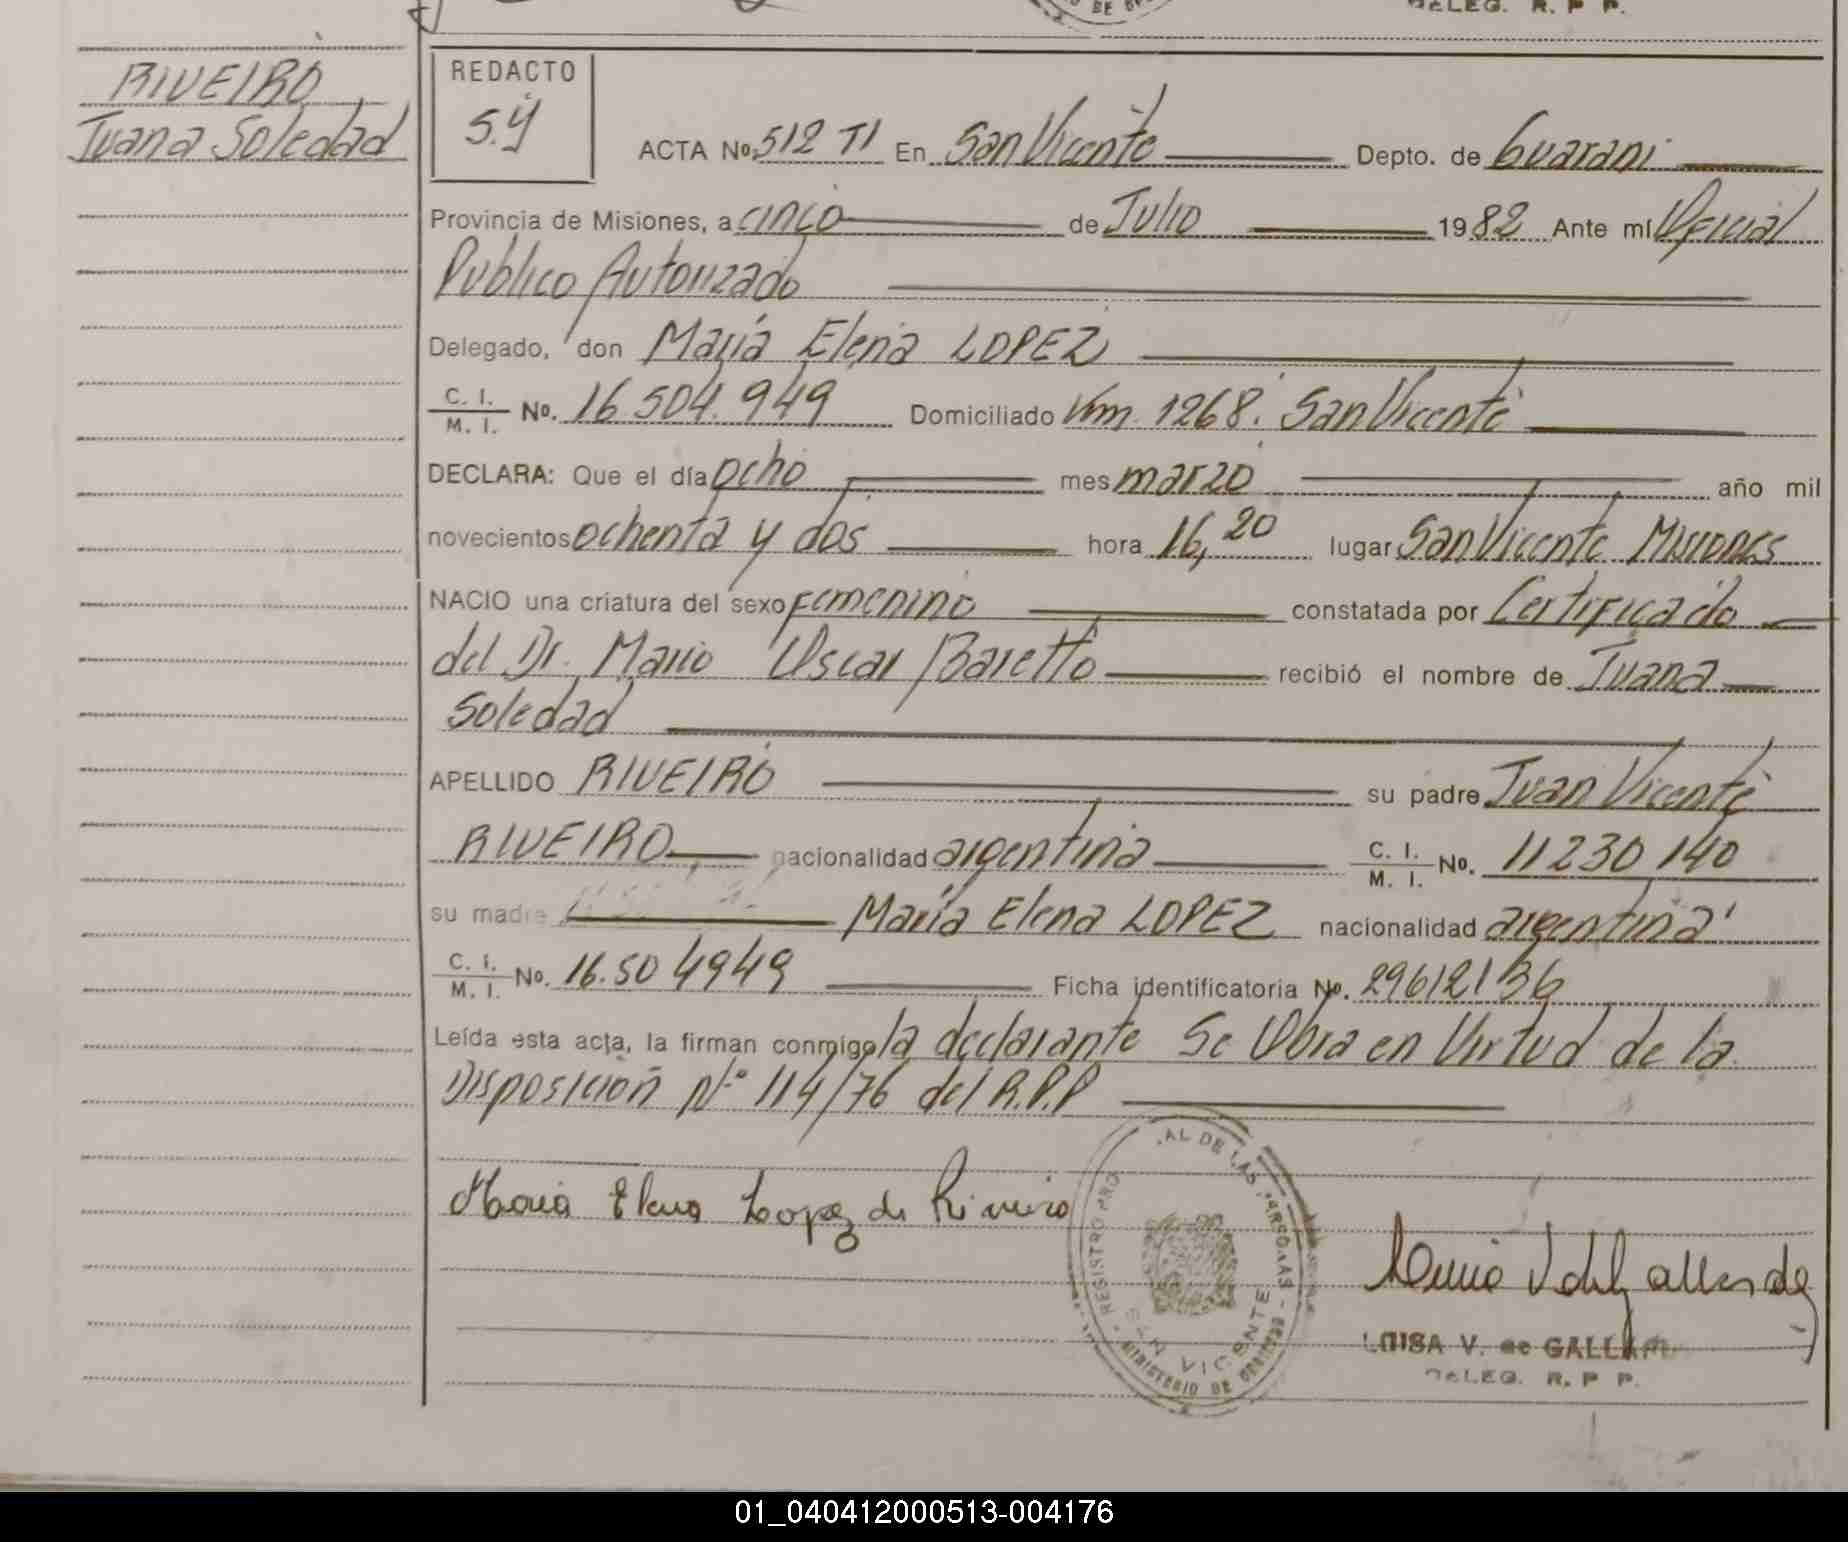 DE
DELEG. R. P P.
RIVEIRO
Juana Soledad
REDACTO
S.Y
ACTA No. 512 TI En San Vicente Depto. de Guarani
Provincia de Misiones, a cinco de Julio 1982 Ante mí Oficial
Publico Autorizado
Delegado, don María Elena LOPEZ
C. I. / M. I. No. 16.504.949 Domiciliado Km. 1268. San Vicente
DECLARA: Que el día ocho mes marzo año mil
novecientos ochenta y dos hora 16,20 lugar San Vicente Misiones
NACIO una criatura del sexo Femenino constatada por Certificado
del Dr. Mario Oscar Baretto recibió el nombre de Juana
Soledad
APELLIDO RIVEIRO su padre Juan Vicente
RIVEIRO nacionalidad argentina C. I. / M. I. No. 11230140
su madre María Elena LOPEZ nacionalidad argentina
C. I. / M. I. No. 16.504949 Ficha identificatoria No. 29612136
Leída esta acta, la firman conmigo la declarante Se Obra en Virtud de la
Disposición Nº 114/76 del R.P.P
María Elena Lopez de Riveiro
REGISTRO PRO AL DE LAS PERSONAS - MINISTERIO DE GOBIERNO
SAN VICENTE
LUISA V. de GALLAR
DELEG. R. P P.
01_040412000513-004176